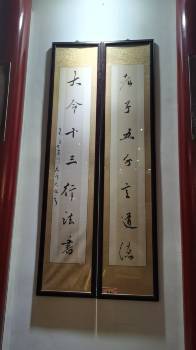 老子五千言道德
大令十三行法書